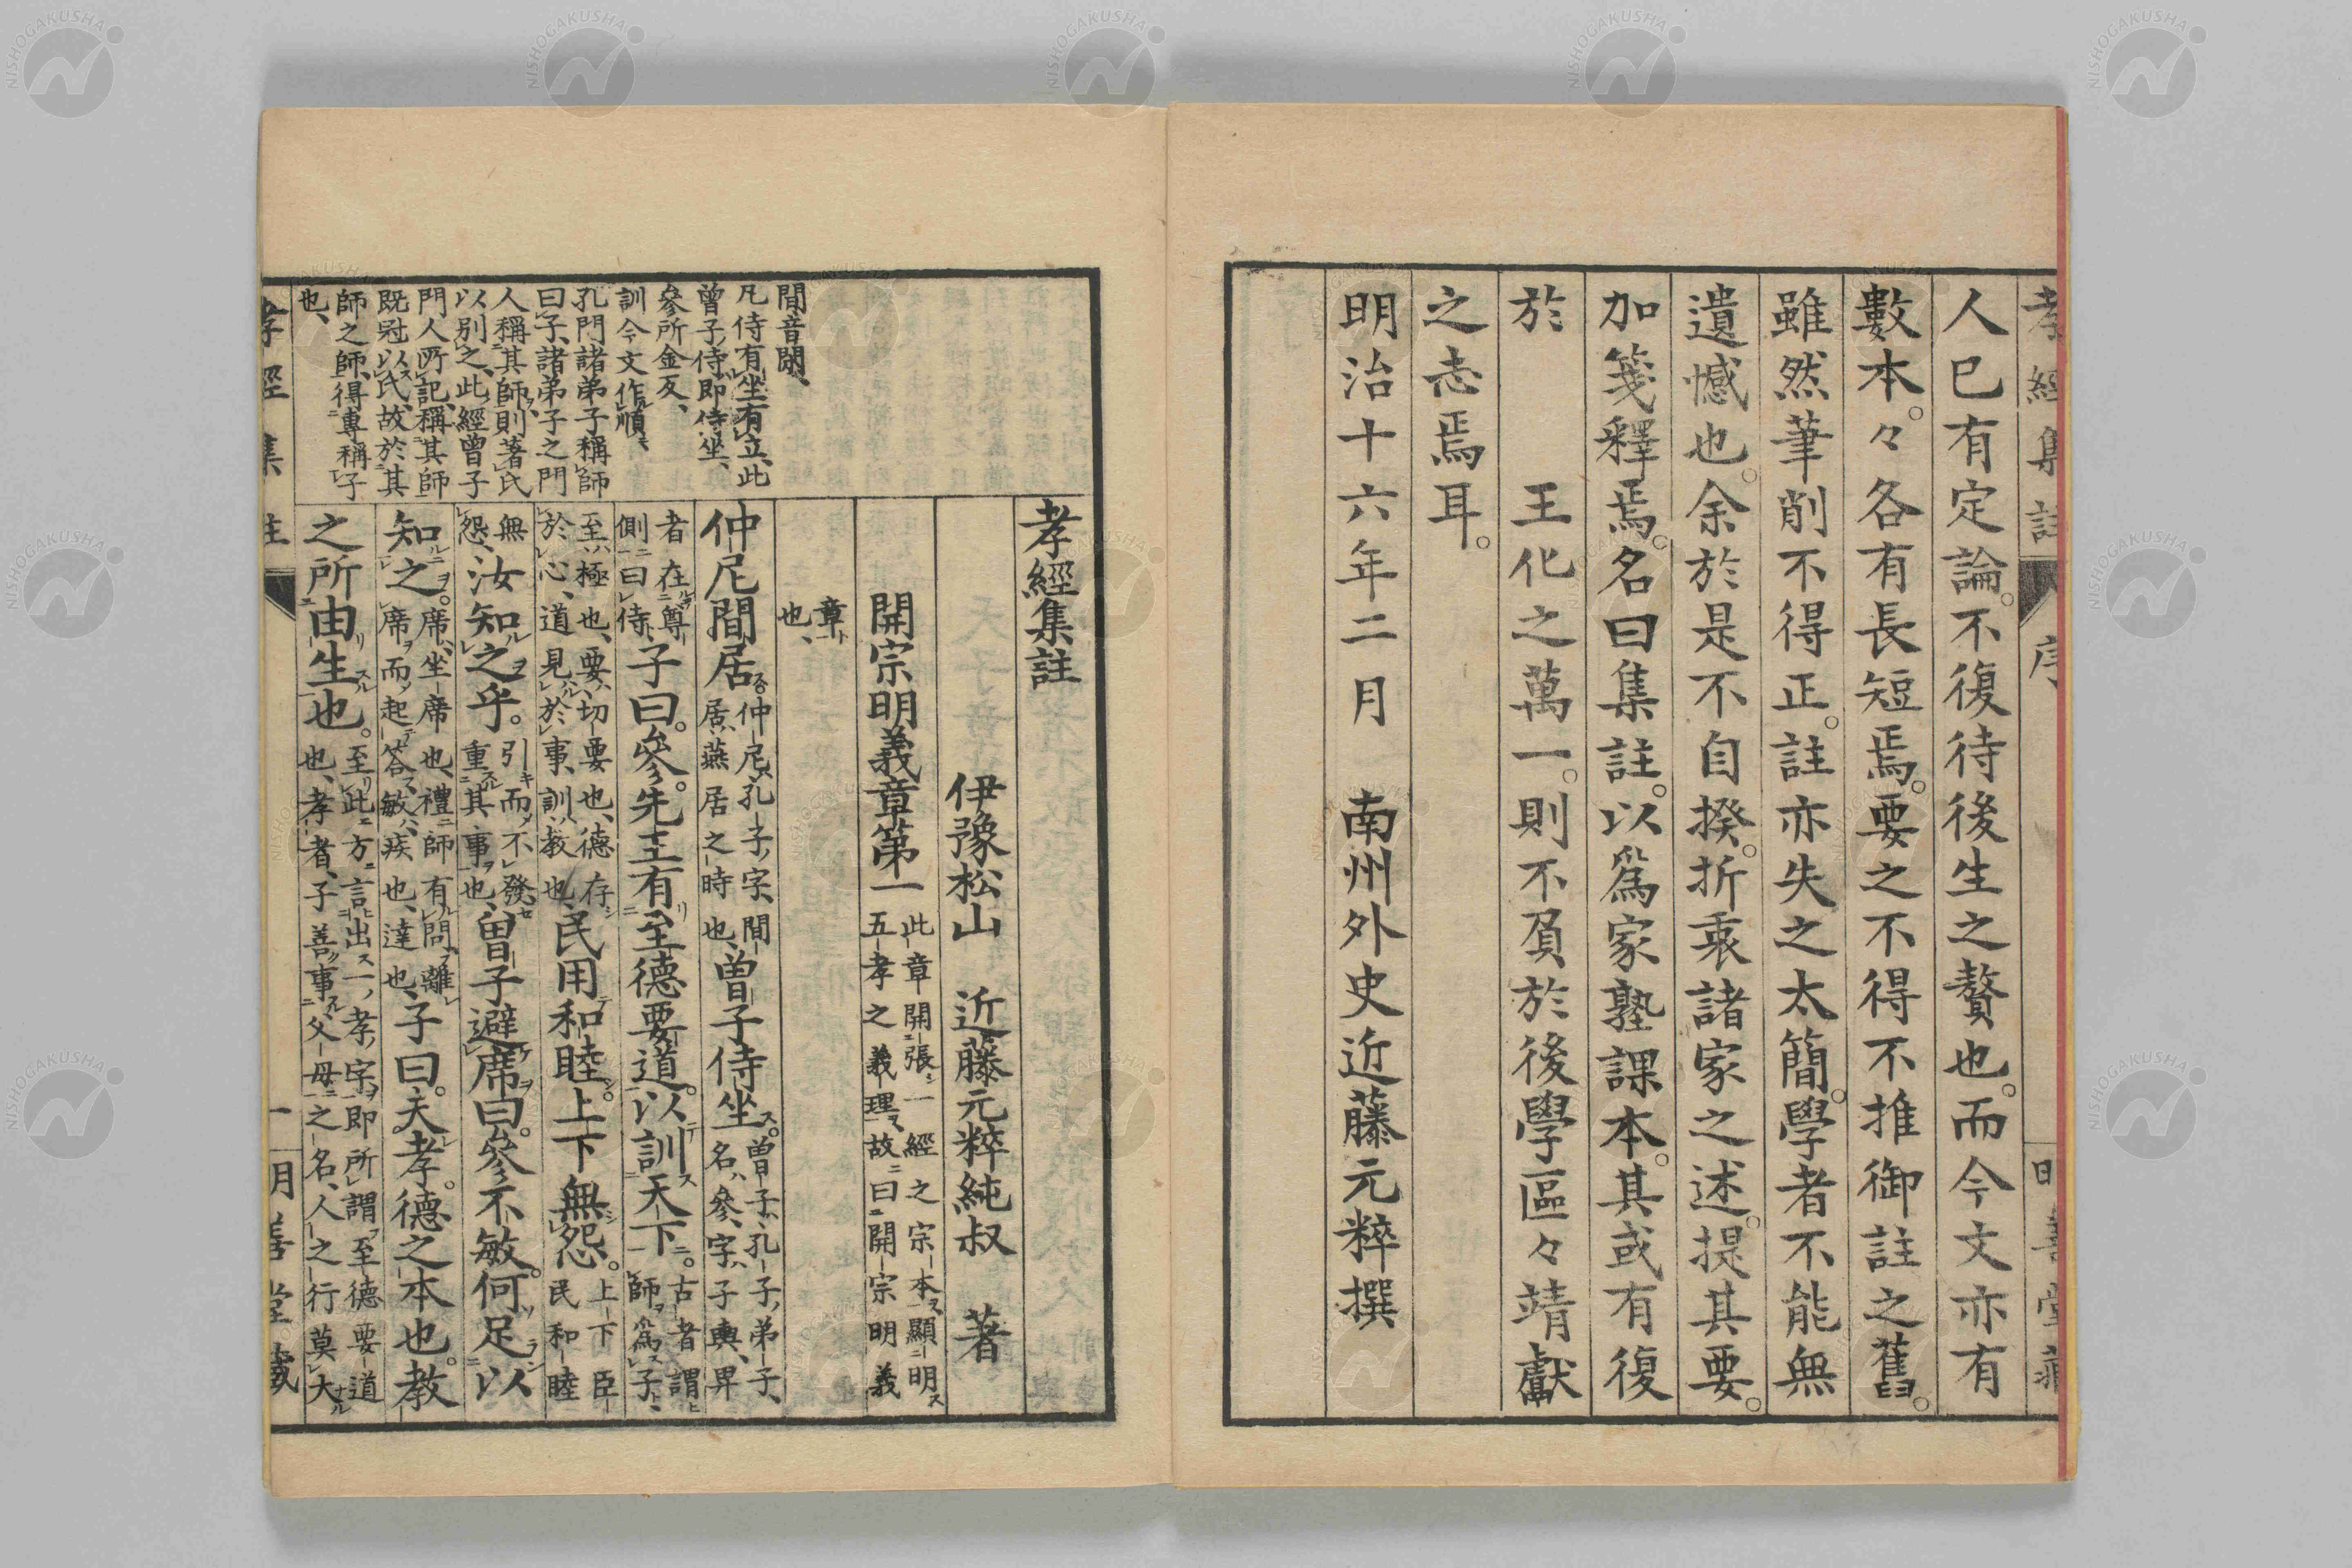 孝經集註 序 明善堂藏
人已有定論。不復待後生之贅也。而今文亦有
數本。々各有長短焉。要之不得不推御註之舊。
雖然筆削不得正。註亦失之太簡。學者不能無
遺憾也。余於是不自揆。折衷諸家之述。提其要。
加箋釋焉。名曰集註。以爲家塾課本。其或有復
於 王化之萬一。則不負於後學區々靖獻
之志焉耳。
明治十六年二月 南州外史近藤元粹撰
間音閑、
凡侍有坐有立、此
曾子侍、即侍坐、
參所金反、
訓今文作順、
孔門諸弟子稱師
曰子、諸弟子之門
人稱其師、則著氏
以別之、此經曾子
門人所記、稱其師
既冠以氏、故於其
師之師、得專稱子
也、
孝經集註
伊豫松山 近藤元粹純叔 著
開宗明義章第一 此章開張一經之宗本顯明
五孝之義理故曰開宗明義
章
也、
仲尼間居 仲尼孔子字、間
居燕居之時也、曾子侍坐。曾子孔子弟子、
名參、字子輿、卑
者在尊
側曰侍子曰。參。先王有至德要道。以訓天下。古者謂
師爲子、
至極也、要切要也、德存
於心、道見於事、訓教也、民用和睦。上下無怨。上下臣
民和睦
無
怨、汝知之乎。引而不發
重其事也、曽子避席曰。參不敏。何足以
知之。席坐席也、禮師有問離
席而起答敏疾也、達也、子曰。夫孝。德之本也。教
之所由生也。至此方言出一孝字即所謂至德要道
也、孝者、子善事父母之名、人之行莫大
孝經集註 一 明善堂藏